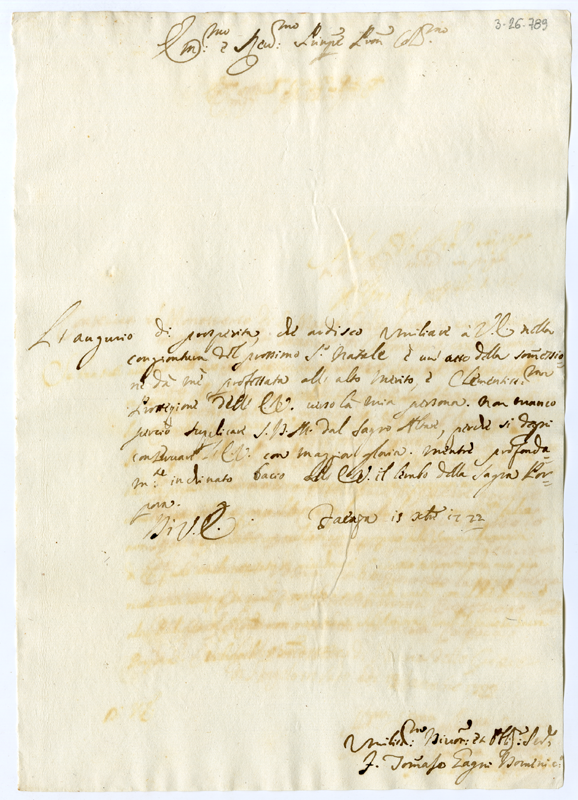 3-26.789
Em.mo: e Reu.mo: Prinpe Pron Col.mo
L'augurio di prosperità, che ardisco umiliare à V.E. nella
congiuntura del prossimo S.to Natale è un' atto della somessio=
ne da me professata all' alto merito, e Clementiss.ma
Protezione dell' E.V. uerso la mia persona. Non manco
perciò suplicare S.D.M. dal Sagro Altare, perche si degni
conseruarl' E.V. con maggior gloria. mentre profonda
m.te inchinato bacio all' E.V. il lembo della Sagra Por=
pora.
Di V.E. Faenza 15 Xbre 1722
Umiliss.mo Diuot.mo et Obl.mo Ser.re
F. Tomaso Domenic